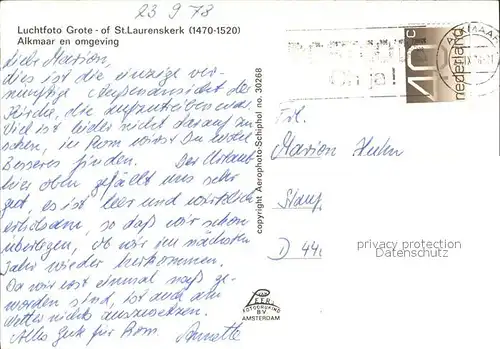 23 9 78
Luchtfoto Grote- of St. Laurenskerk (1470-1520)
Alkmaar en omgeving
Liebe Marion,
dies ist die einzige ver-
nünftige Außenansicht der
Kirche, die aufzutreiben war.
Viel ist leider nicht darauf zu
sehen, in Rom wirst Du wohl
Besseres finden. Der Urlaub
hier oben gefällt uns sehr
gut, es ist leer und wirklich
erholsam, so daß wir schon
überlegen, ob wir im nächsten
Jahr wieder herkommen.
Da wir erst einmal naß ge-
worden sind, ist auch am
Wetter nichts auszusetzen.
Alles Gute für Rom Annette
copyright Aerophoto-Schiphol no. 30268
VAN LEER
FOTODRUKIND
B.V.
AMSTERDAM
Oh ja!
40c
nederland
ALKMAAR
Frl.
Marion
D 44
privacy protection
Datenschutz